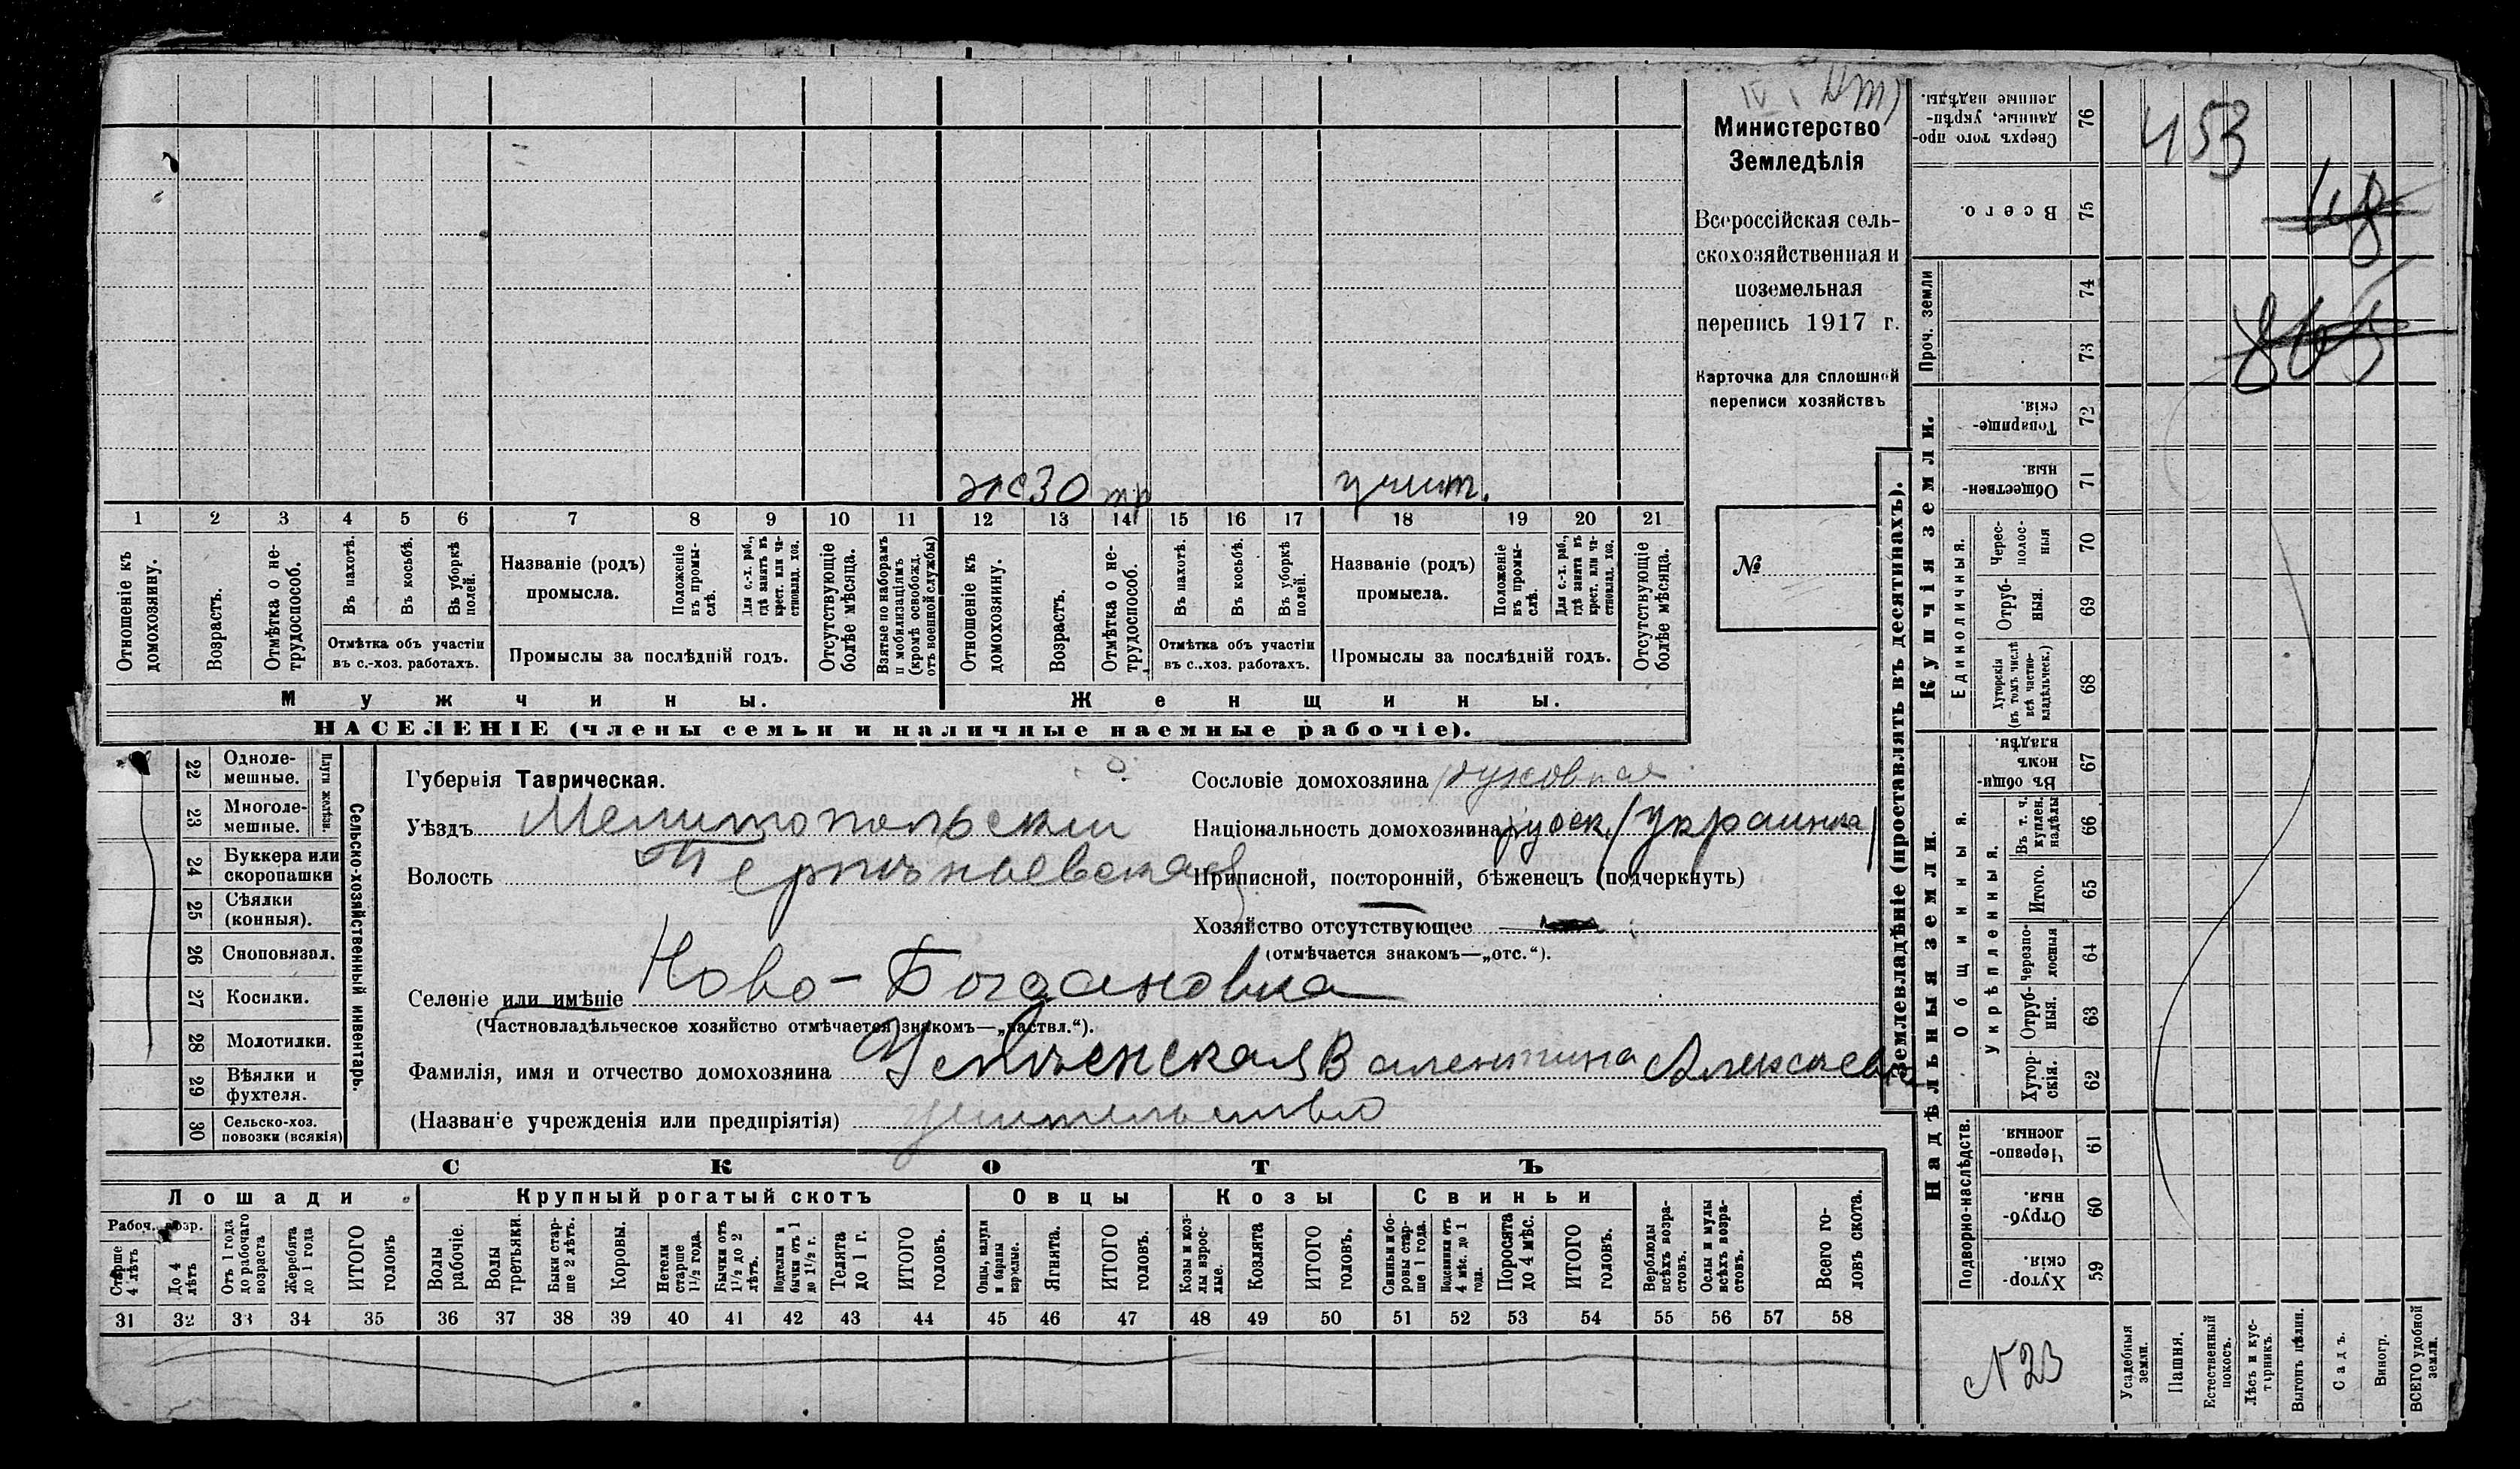 Министерство
Земледѣлія
Всероссійская сель-
скохозяйственная и
поземельная
перепись 1917 г.
Карточка для сплошной
переписи хозяйствъ
№
ж 30 учит.
1 2 3 4 5 6 7 8 9 10 11 12 13 14 15 16 17 18 19 20 21
Отношеніе къ домохозяину.
Возрастъ.
Отмѣтка о не-трудоспособ.
Въ пахотѣ.
Въ косьбѣ.
Въ уборкѣ полей.
Отмѣтка объ участіи
въ с.-хоз. работахъ.
Названіе (родъ)
промысла.
Положеніе въ промы-слѣ.
Для с.-х. раб., гдѣ занятъ въ крест. или ча-стновлад. хоз.
Промыслы за послѣдній годъ.
Отсутствующіе болѣе мѣсяца.
Взятые по наборамъ и мобилизаціямъ (кромѣ освобожд. отъ военной службы)
Отношеніе къ домохозяину.
Возрастъ.
Отмѣтка о не-трудоспособ.
Въ пахотѣ.
Въ косьбѣ.
Въ уборкѣ полей.
Отмѣтка объ участіи
въ с..хоз. работахъ.
Названіе (родъ)
промысла.
Положеніе въ промы-слѣ.
Для с.-х. раб., гдѣ занята въ крест. или ча-стновлад. хоз.
Промыслы за послѣдній годъ.
Отсутствующіе болѣе мѣсяца.
Мужчины.
Женщины.
НАСЕЛЕНІЕ (члены семьи и наличные наемные рабочіе).
Сельско-хозяйственный инвентарь.
Плуги желѣзн.
22 Одноле-мешные.
23 Многоле-мешные.
24 Буккера или скоропашки
25 Сѣялки (конныя).
26 Сноповязал.
27 Косилки.
28 Молотилки.
29 Вѣялки и фухтеля.
30 Сельско-хоз. повозки (всякія)
Губернія Таврическая.
Уѣздъ Мелитопольскій
Волость
Селеніе или имѣніе Ново-Богдановка
(Частновладѣльческое хозяйство отмѣчается знакомъ—„частвл.“).
Фамилія, имя и отчество домохозяина Валентина Алексѣевна
(Названіе учрежденія или предпріятія) учительство
Сословіе домохозяина духовная
Національность домохозяина русск. /украинка/
Приписной, посторонній, бѣженецъ (подчеркнуть)
Хозяйство отсутствующее
(отмѣчается знакомъ—„отс.“).
СКОТЪ
Лошади
Крупный рогатый скотъ
Овцы
Козы
Свиньи
Рабоч. возр.
Старше 4 лѣтъ
До 4 лѣтъ
Отъ 1 года до рабочаго возраста
Жеребята до 1 года
ИТОГО головъ
Волы рабочіе.
Волы третьяки.
Быки стар-ше 2 лѣтъ.
Коровы.
Нетели старше 1½ года.
Бычки отъ 1½ до 2 лѣтъ.
Подтелки и бычки отъ 1 до 1½ г.
Телята до 1 г.
ИТОГО головъ.
Овцы, валухи и бараны взрослые.
Ягнята.
ИТОГО головъ.
Козы и коз-лы взрос-лые.
Козлята
ИТОГО головъ.
Свиньи и бо-ровы стар-ше 1 года.
Подсвинки отъ 4 мѣс. до 1 года.
Поросята до 4 мѣс.
ИТОГО головъ.
Верблюды всѣхъ возра-стовъ.
Ослы и мулы всѣхъ возра-стовъ.
Всего го-ловъ скота.
31 32 33 34 35 36 37 38 39 40 41 42 43 44 45 46 47 48 49 50 51 52 53 54 55 56 57 58
Землевладѣніе (проставлять въ десятинахъ).
Купчія земли.
Надѣльныя земли.
Сверхъ того про-данные, укрѣп-ленные надѣлы. 76
Всего. 75
Проч. земли 74 73
Товарище-скія. 72
Обществен-ныя. 71
Единоличныя.
Черес-полос-ныя 70
Отруб-ныя. 69
Хуторскія (въ томъ числѣ всѣ частно-владѣльческ.) 68
Общинныя.
Въ общи-номъ владѣн. 67
Укрѣпленныя.
Въ т. ч. куплен. надѣлы 66
Итого. 65
Черезпо-лосныя 64
Отруб-ныя. 63
Хутор-скія. 62
Подворно-наслѣдств.
Черезпо-лосныя. 61
Отруб-ныя. 60
Хутор-скія. 59
Усадебныя земли.
Пашня.
Естественный покосъ.
Лѣсъ и кус-тарникъ.
Выгонъ цѣлин.
Садъ.
Виногр.
ВСЕГО удобной земли.
453
48
865
N 23